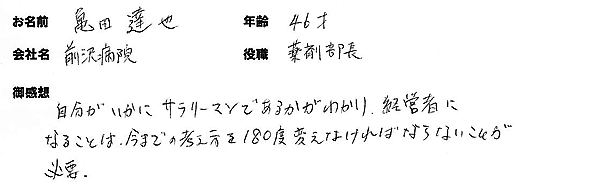 お名前 亀田達也 年齢 46才
会社名 前沢病院 役職 薬剤部長
御感想
自分がいかにサラリーマンであるかがわかり、経営者に
なることは、今までの考え方を180度変えなければならないことが
必要。